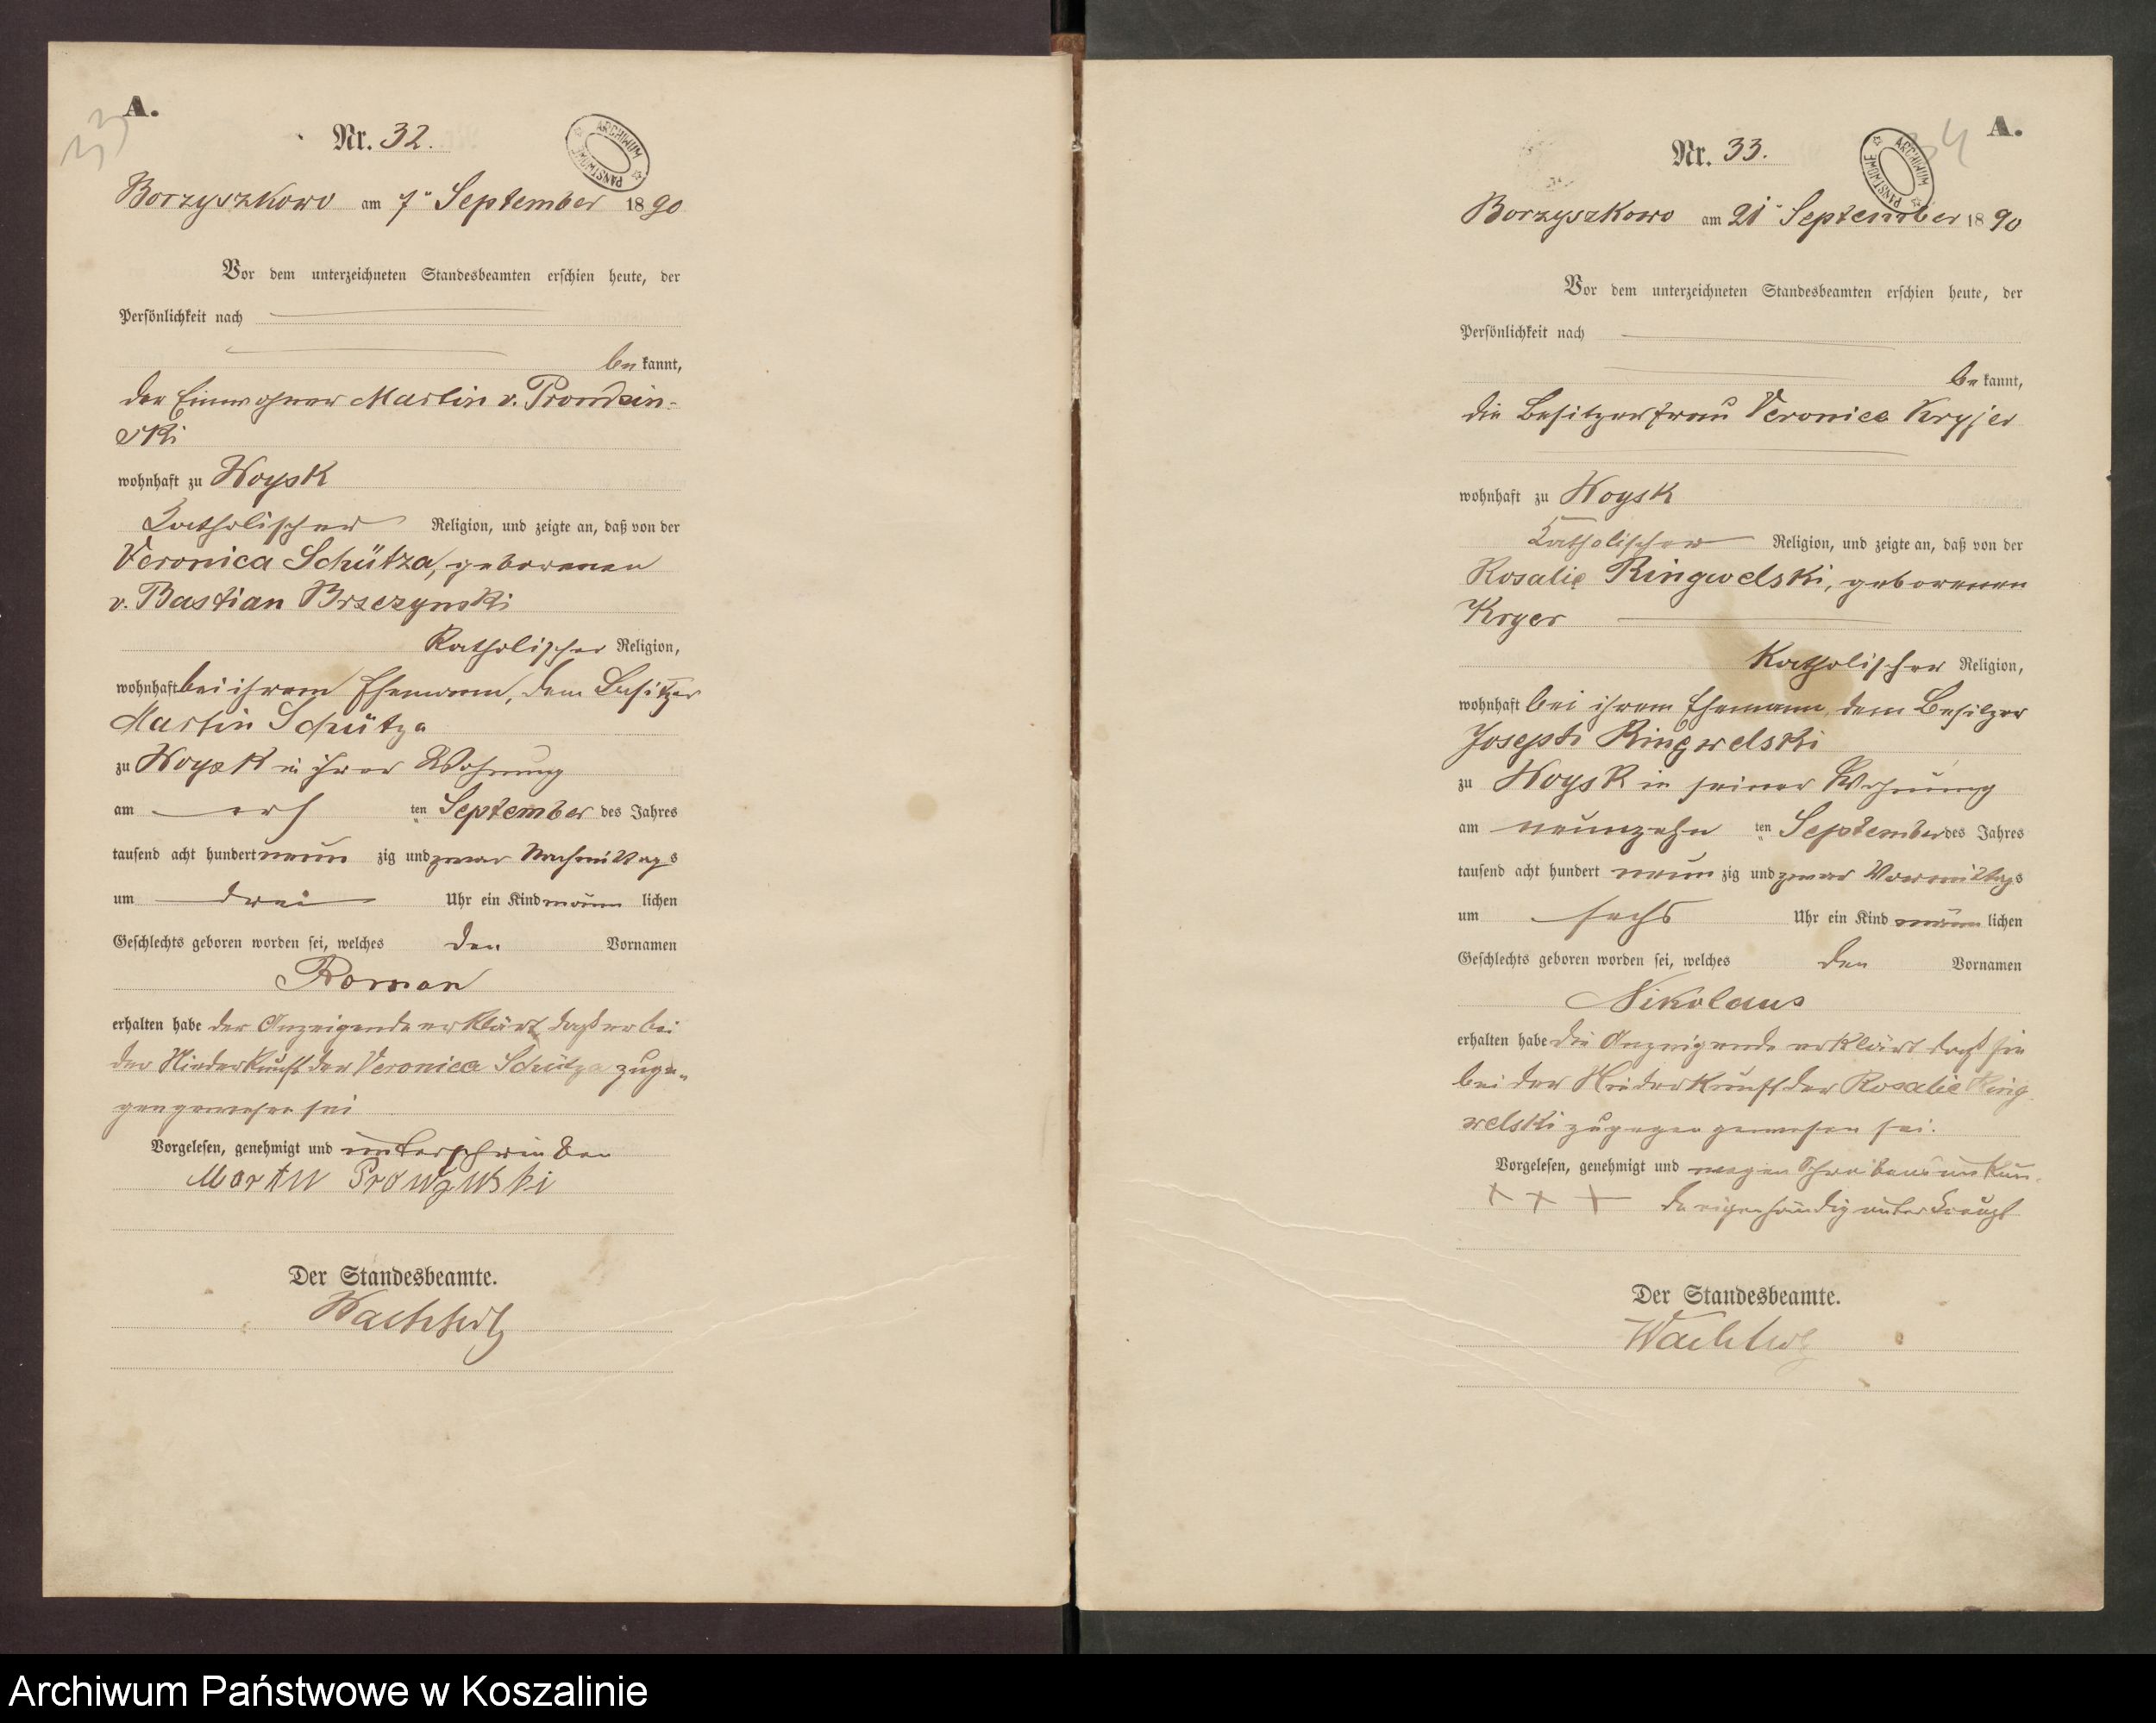 33
A.
Nr. 32.
ARCHIWUM PAŃSTWOWE
Borzyszkowo am 7ⁿ September 1890
Vor dem unterzeichneten Standesbeamten erschien heute, der
Persönlichkeit nach
bekannt,
der Einwohner Martin v. Prondzin-
ski
wohnhaft zu Woysk
Katholischer Religion, und zeigte an, daß von der
Veronica Schütza, geborenen
v. Bastian Brzezynski
Katholischer Religion,
wohnhaft bei ihrem Ehemann, dem Besitzer
Martin Schütza
zu Woysk in ihrer Wohnung
am ten September des Jahres
tausend acht hundert neun zig und zwar Nachmittags
um drei Uhr ein Kind männ lichen
Geschlechts geboren worden sei, welches den Vornamen
Roman
erhalten habe der Anzeigende erklärt, daß er bei
der Niederkunft der Veronica Schütza zuge-
gen gewesen sei
Vorgelesen, genehmigt und unterschrieben
Martin
Der Standesbeamte.
Wachholz
34
A.
Nr. 33.
ARCHIWUM PAŃSTWOWE
Borzyszkowo am 21ⁿ September 1890
Vor dem unterzeichneten Standesbeamten erschien heute, der
Persönlichkeit nach
bekannt,
die Besitzerfrau Veronica Kryjer
wohnhaft zu Woysk
Katholischer Religion, und zeigte an, daß von der
Rosalie Ringwelski, geborenen
Kryer
Katholischer Religion,
wohnhaft bei ihrem Ehemann, dem Besitzer
Joseph Ringwelski
zu Woysk in seiner Wohnung
am neunzehn ten September des Jahres
tausend acht hundert neun zig und zwar Vormittags
um sechs Uhr ein Kind männ lichen
Geschlechts geboren worden sei, welches den Vornamen
Nikolaus
erhalten habe die Anzeigende erklärt daß sie
bei der Niederkunft der Rosalie Ring
welski zugegen gewesen sei.
Vorgelesen, genehmigt und wegen Schreibensunkun-
+ + + de eigenhändig unterkreuzt
Der Standesbeamte.
Wachholz
Archiwum Państwowe w Koszalinie